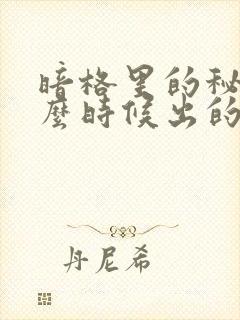 暗格里的秘
麼時候出的
丹尼希